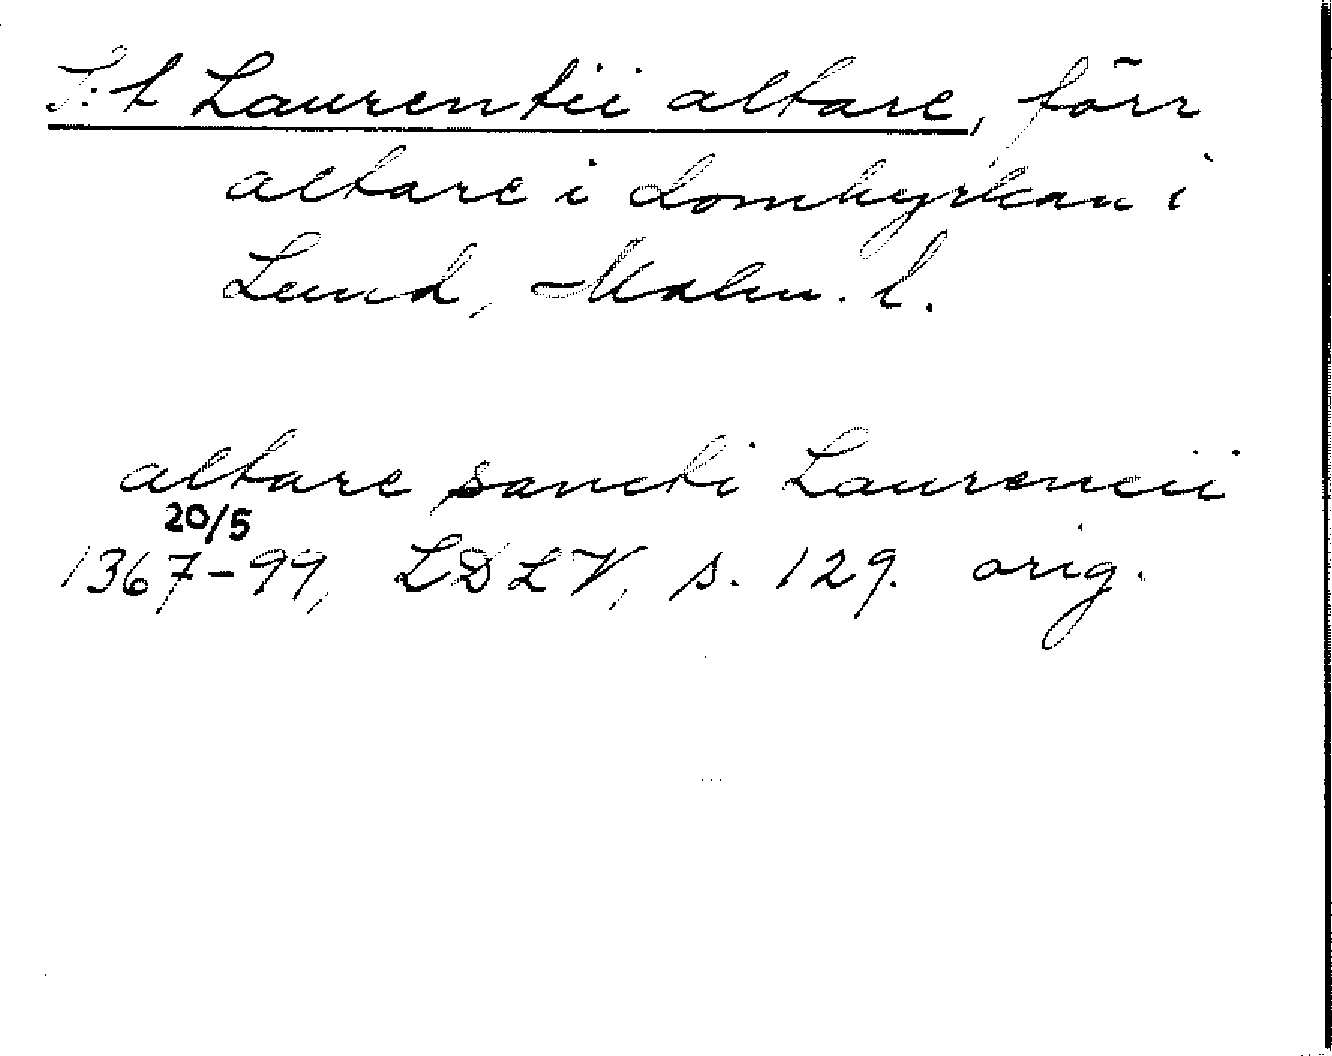 S:t Laurentii altare, förr
altare i domkyrkan i
Lund, Malm. l.
altare sancti Laurencii
20/5
1367-99, LDLV, s. 129. orig.